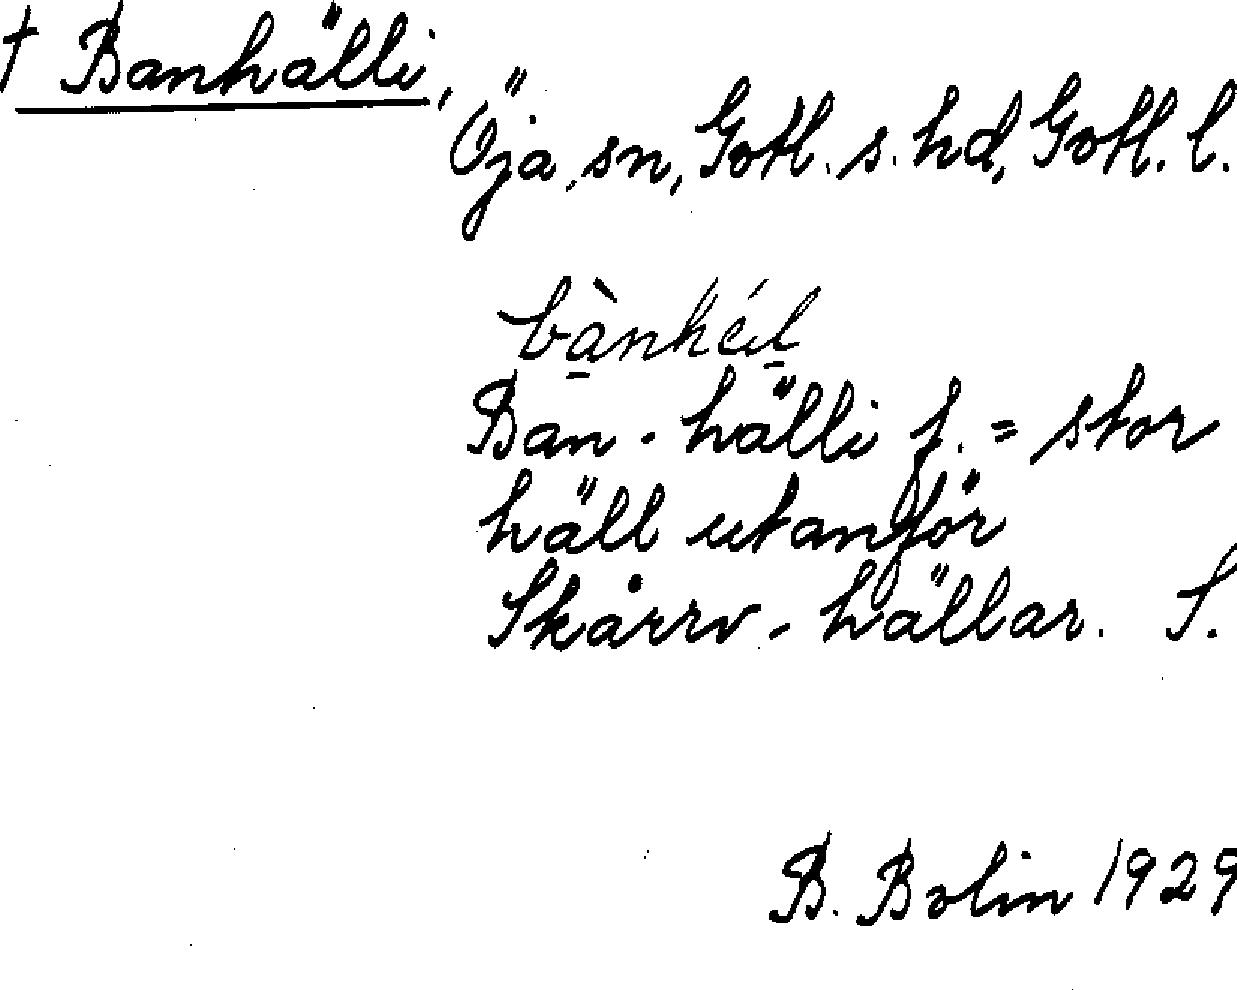 † Banhälli,
Öja, sn, Gotl. s. hd, Gotl. l.
Ban-hälli f. = stor
häll utanför
Skårrv-hällar. S.
B. Bolin 1929